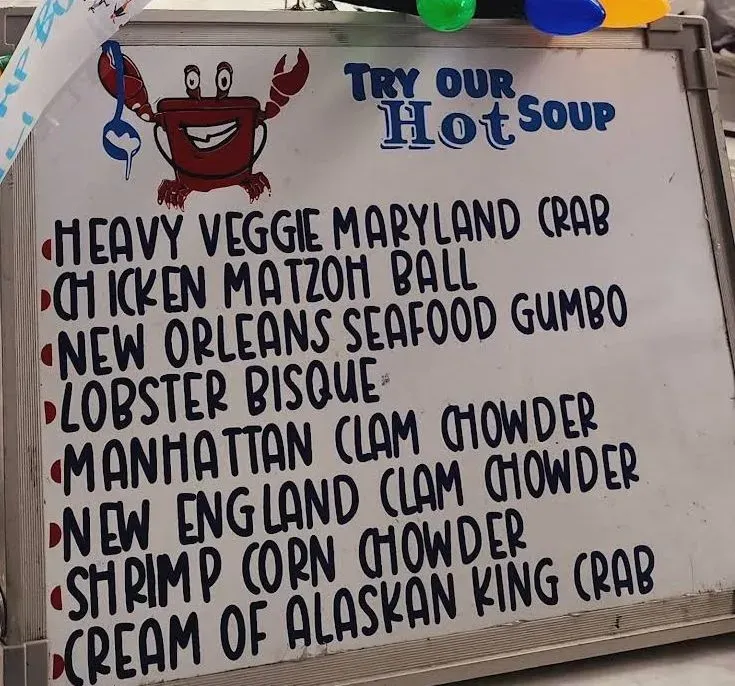 TRY OUR
Hot SOUP
HEAVY VEGGIE MARYLAND CRAB
CHICKEN MATZOH BALL
NEW ORLEANS SEAFOOD GUMBO
LOBSTER BISQUE
MANHATTAN CLAM CHOWDER
NEW ENGLAND CLAM CHOWDER
SHRIMP CORN CHOWDER
CREAM OF ALASKAN KING CRAB